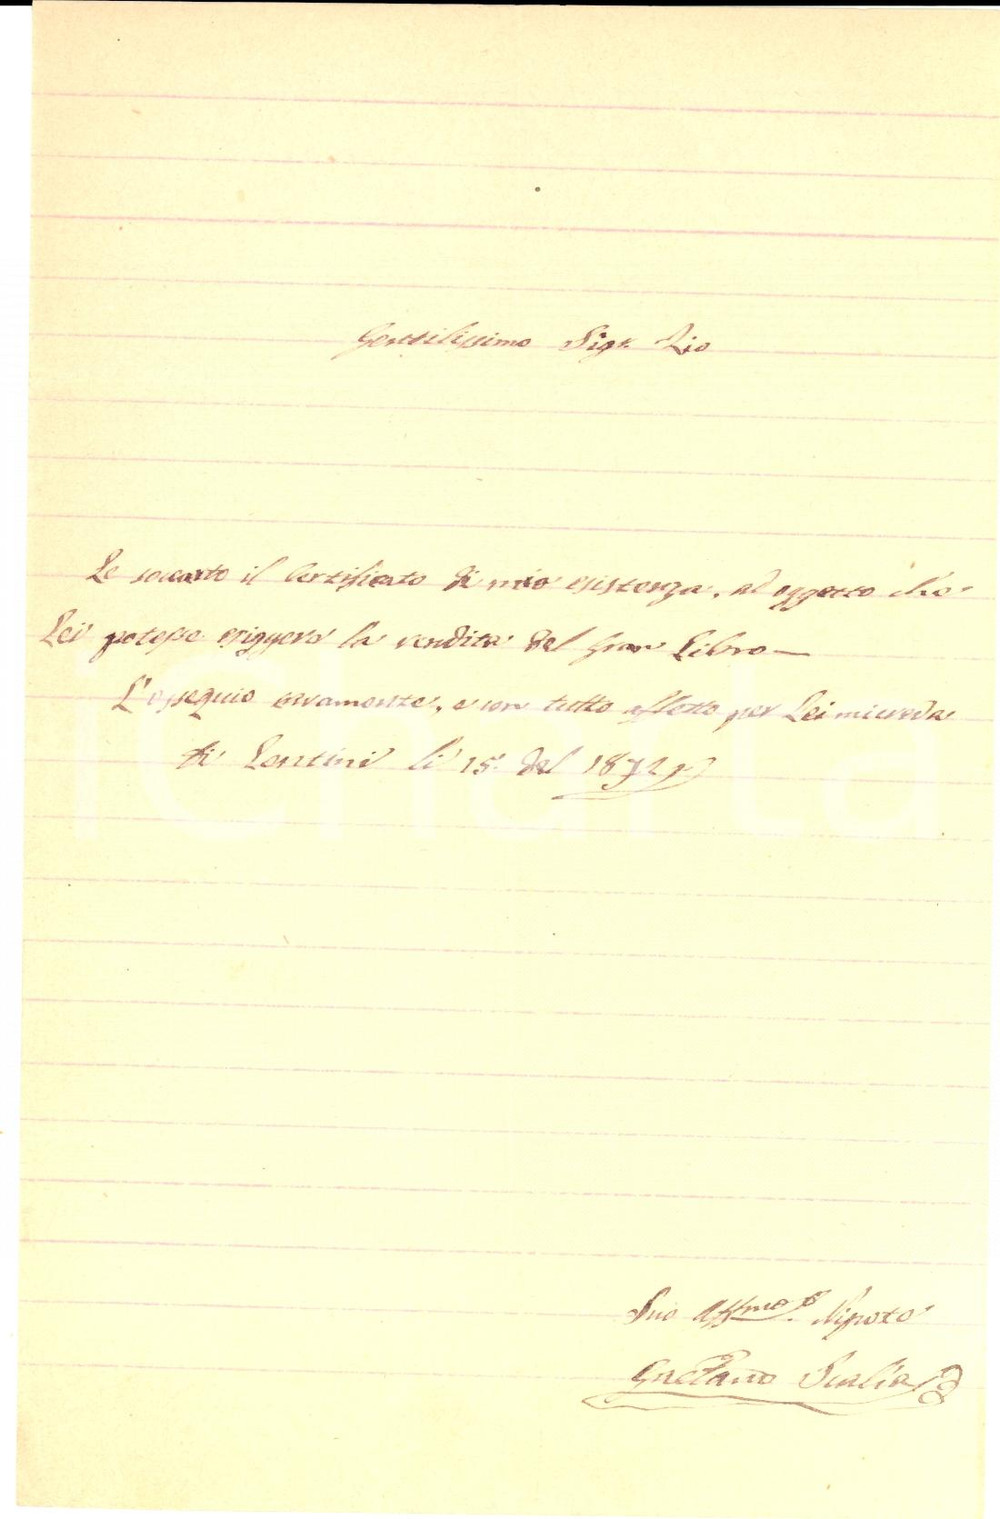 Gentilissimo Sigr. Zio
Le soccarto il Certificato di mio esistenza, ad oggetto che
Lei potesse esiggere la rendita del Gran Libro —
L'ossequio caramente, e con tutto affetto per Lei mi creda
di Lentini li 15 del 1872
Suo Affmo. Nipote
Gaetano Scalia
iCharta